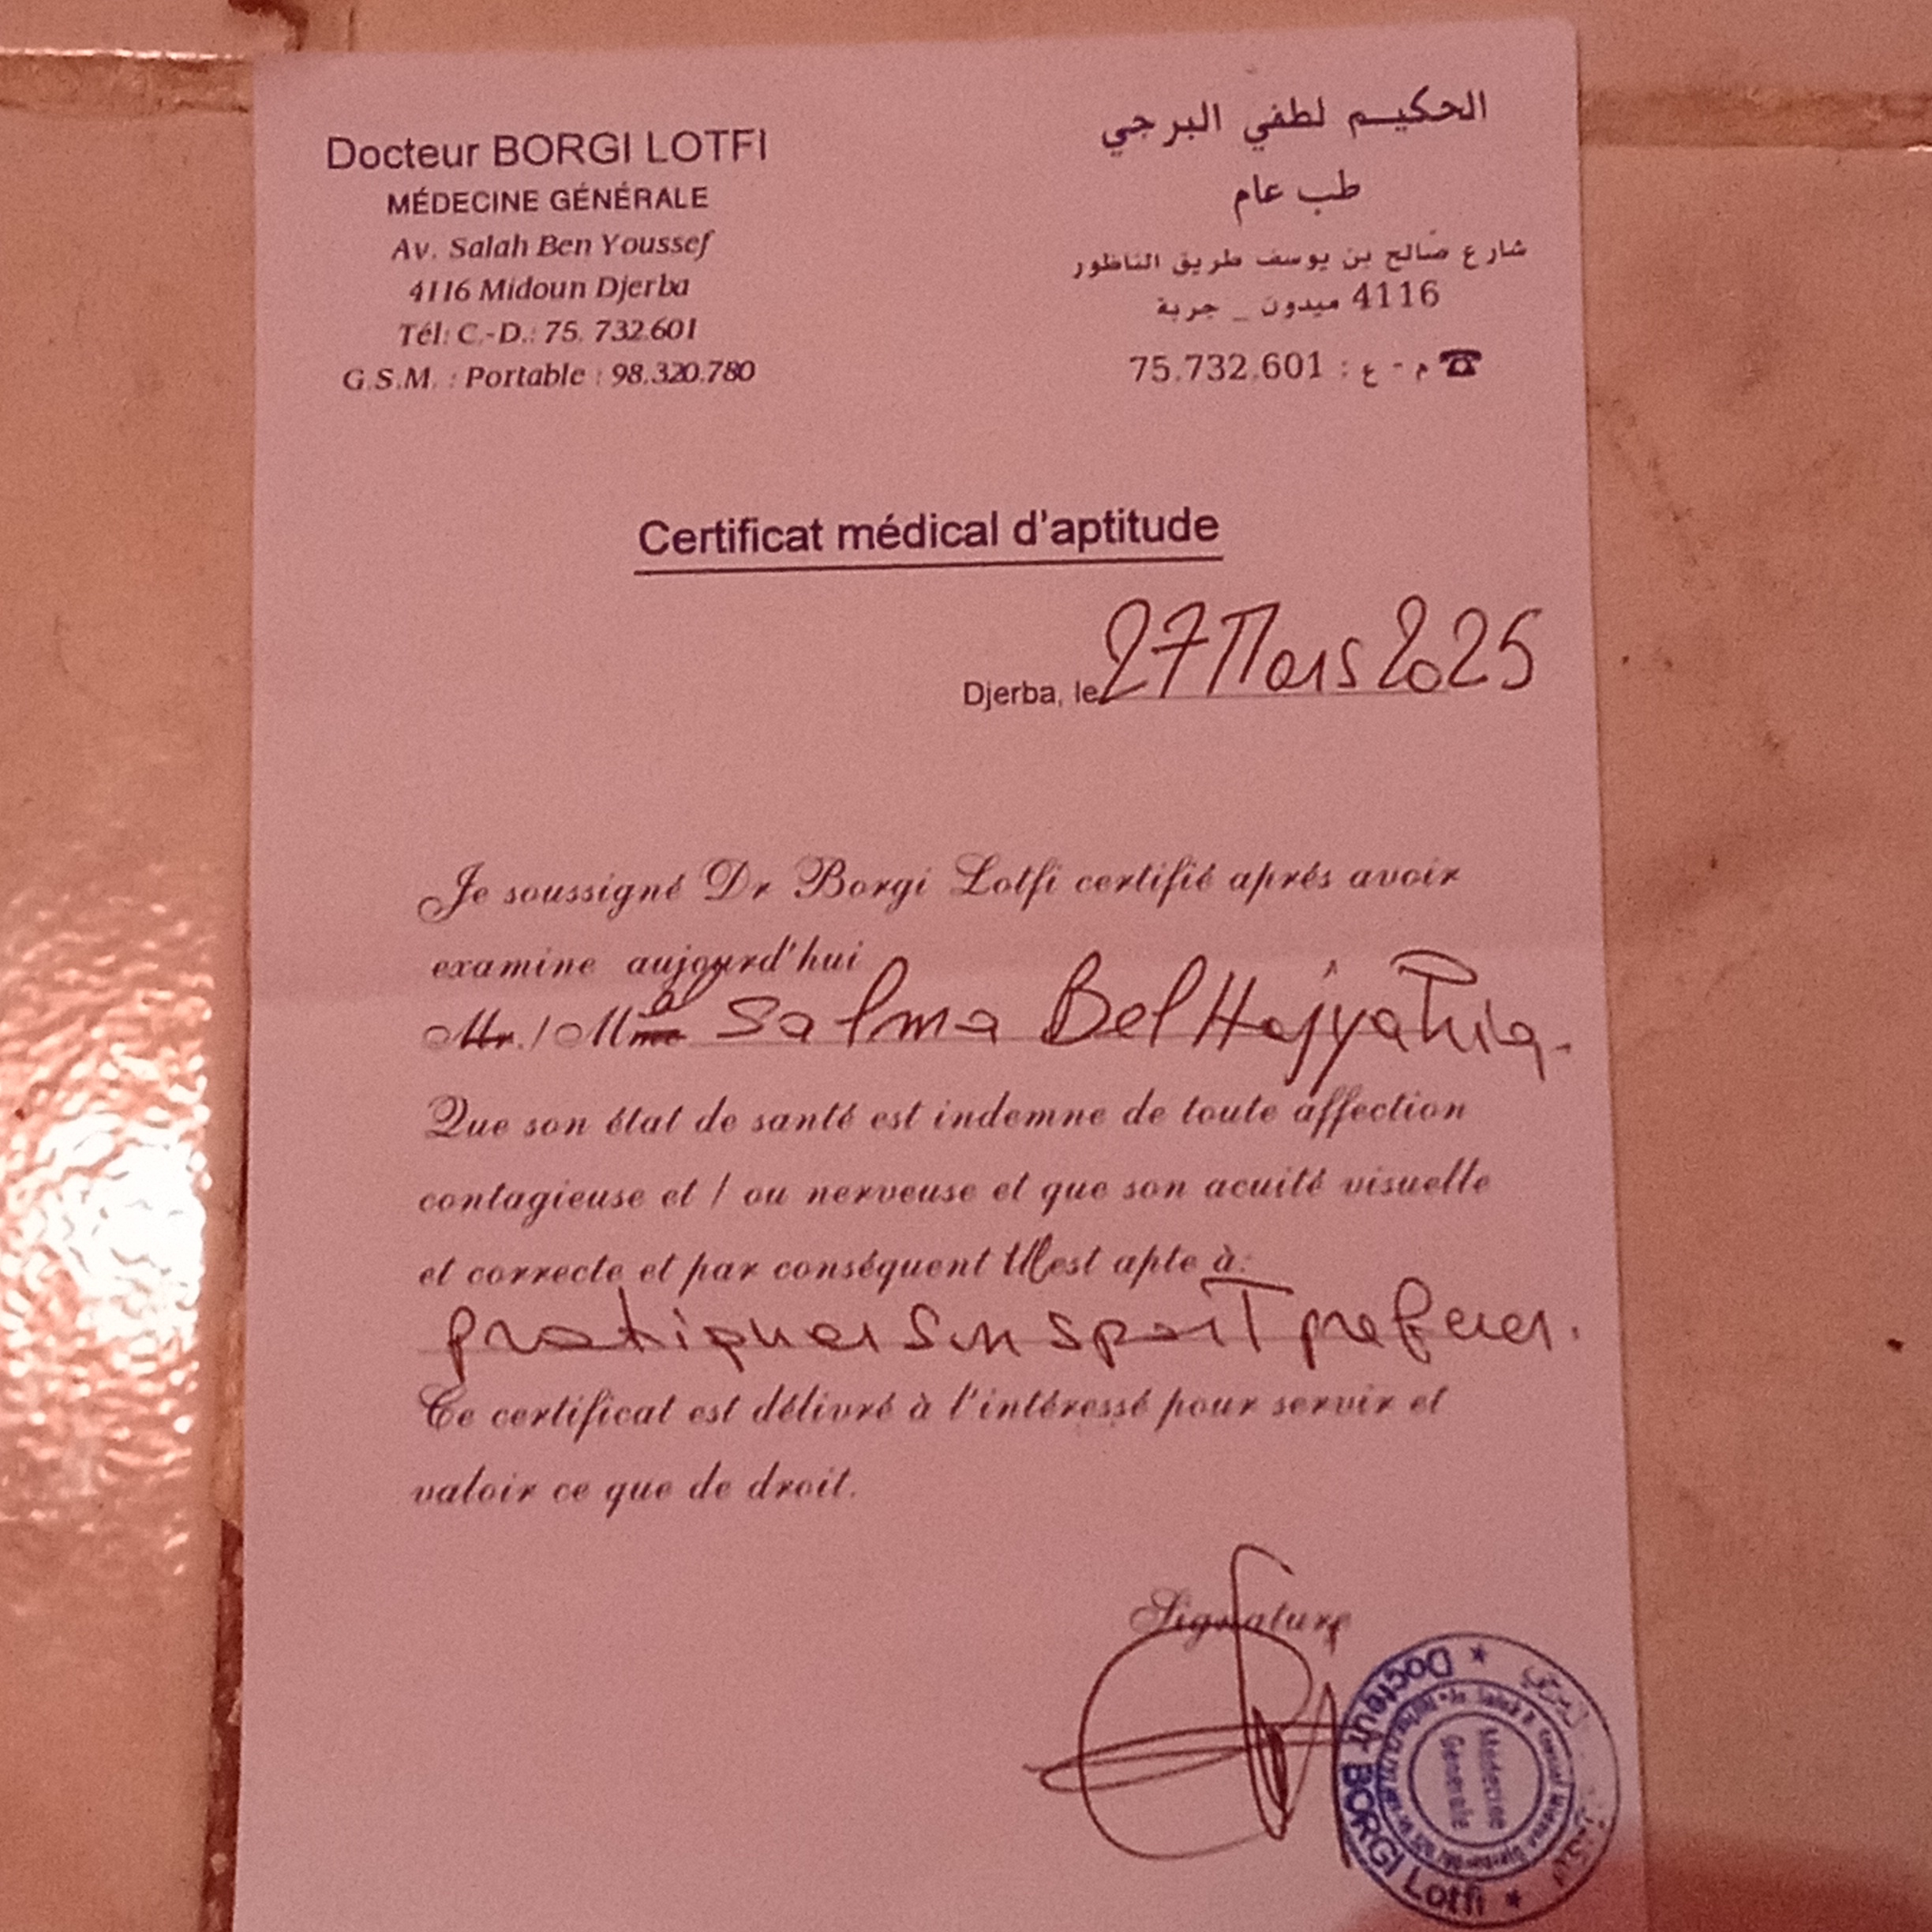 Docteur BORGI LOTFI
MÉDECINE GÉNÉRALE
Av. Salah Ben Youssef
4116 Midoun Djerba
Tél: C.-D.: 75. 732.601
G.S.M. : Portable : 98.320.780
الحكيم لطفي البرجي
طب عام
شارع صالح بن يوسف طريق الناظور
4116 ميدون _ جربة
☎ م - ع : 75.732.601
Certificat médical d'aptitude
Djerba, le 27 Mars 2025
Je soussigné Dr Borgi Lotfi certifié aprés avoir
examine aujourd'hui
Mr. / Mme Salma Bel Haj yahia.
Que son état de santé est indemne de toute affection
contagieuse et / ou nerveuse et que son acuité visuelle
et correcte et par conséquent est apte à:
pratiquer son sport preferer.
Ce certificat est délivré à l'intéressé pour servir et
valoir ce que de droit.
Signature
★ Docteur BORGI Lotfi ★
Médecine
Générale